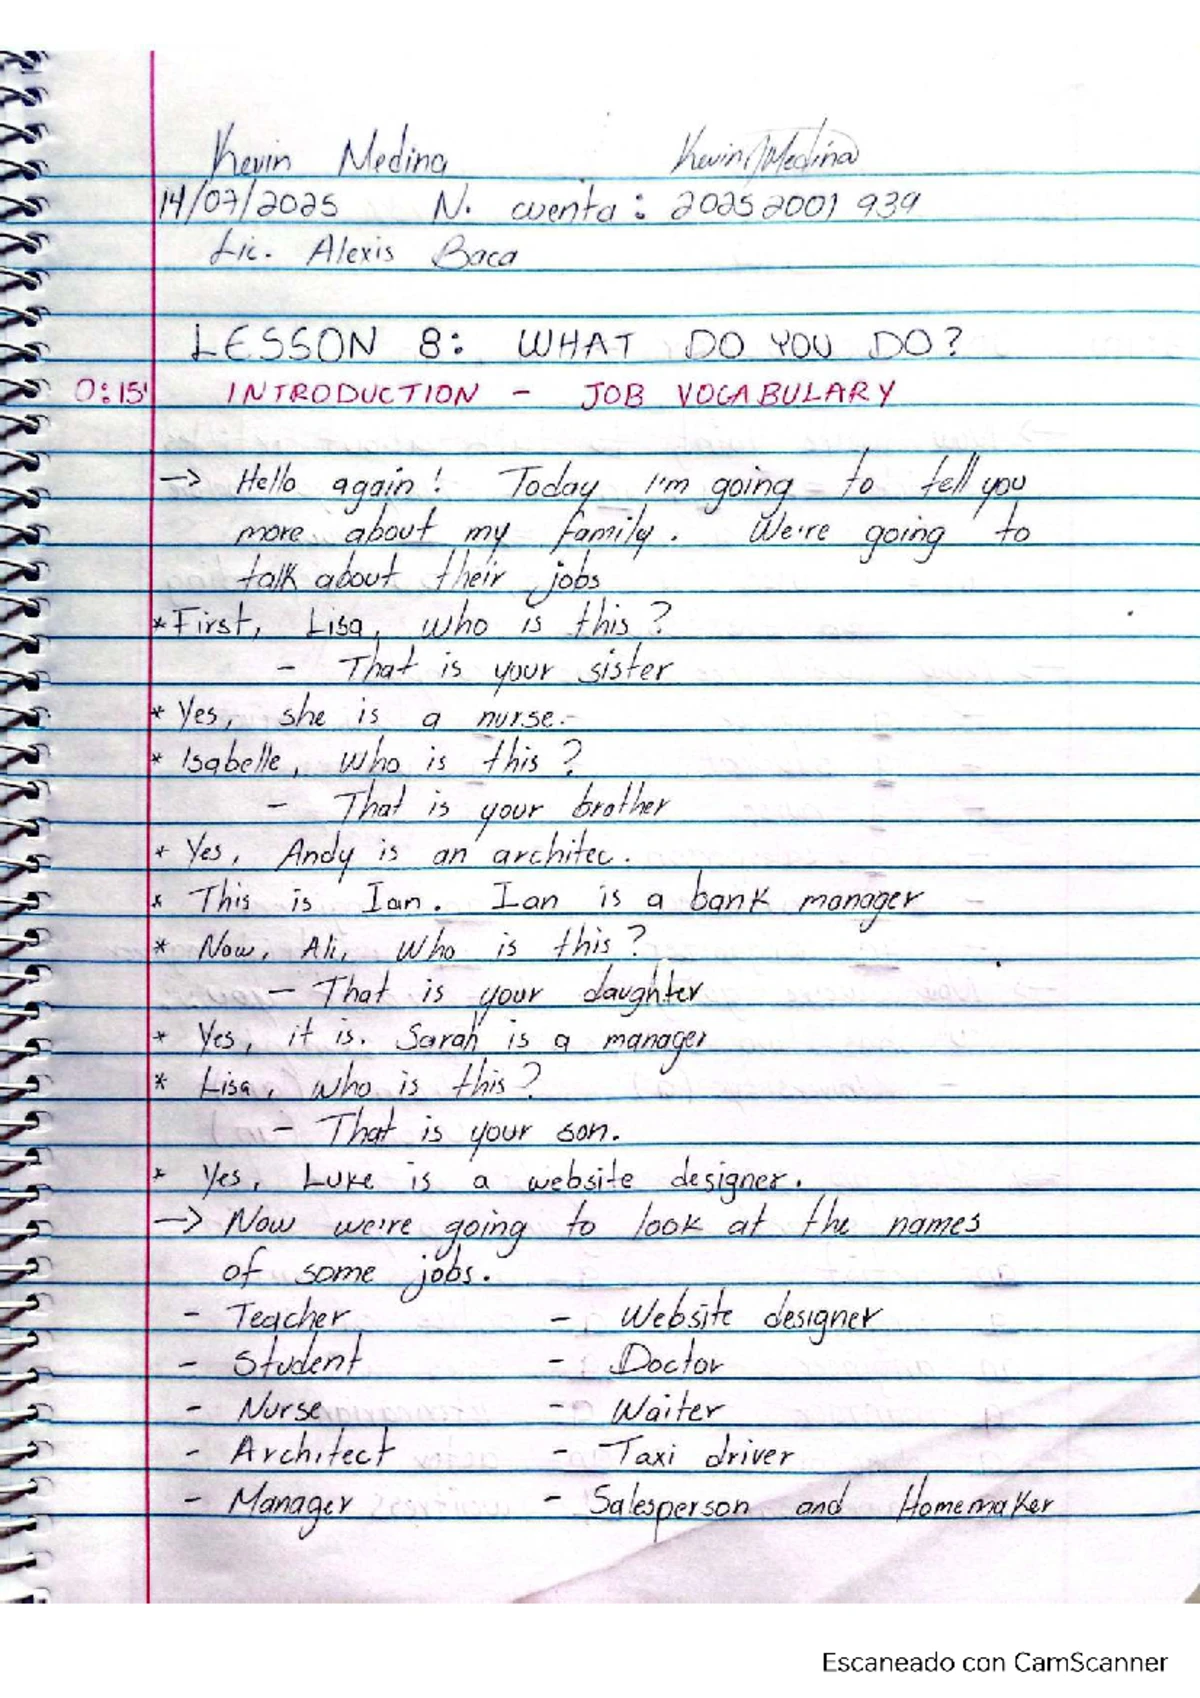 Kevin Medina Kevin Medina
14/07/2025 N. cuenta: 20252001939
Lic. Alexis Baca
LESSON 8: WHAT DO YOU DO?
0:15' INTRODUCTION - JOB VOCABULARY
-> Hello again! Today I'm going to tell you
more about my family. We're going to
talk about their jobs
* First, Lisa, who is this?
- That is your sister
* Yes, she is a nurse.-
* Isabelle, Who is this?
- That is your brother
* Yes, Andy is an architec.
* This is Ian. Ian is a bank manager
* Now, Ali, Who is this?
- That is your daughter
* Yes, it is. Sarah is a manager
* Lisa, who is this?
- That is your son.
* Yes, Luke is a website designer.
-> Now we're going to look at the names
of some jobs.
- Teacher - Website designer
- Student - Doctor
- Nurse - Waiter
- Architect - Taxi driver
- Manager - Salesperson and Homemaker
Escaneado con CamScanner